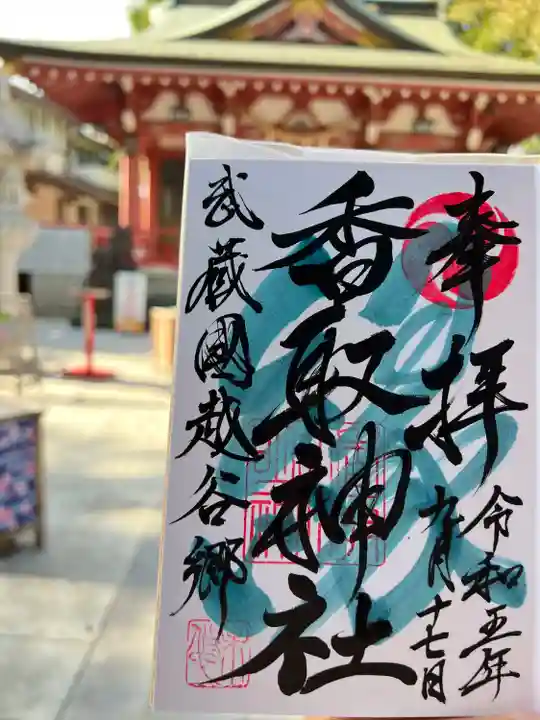 奉拝
令和五年
九月十七日
香取神社
武蔵國越谷郷